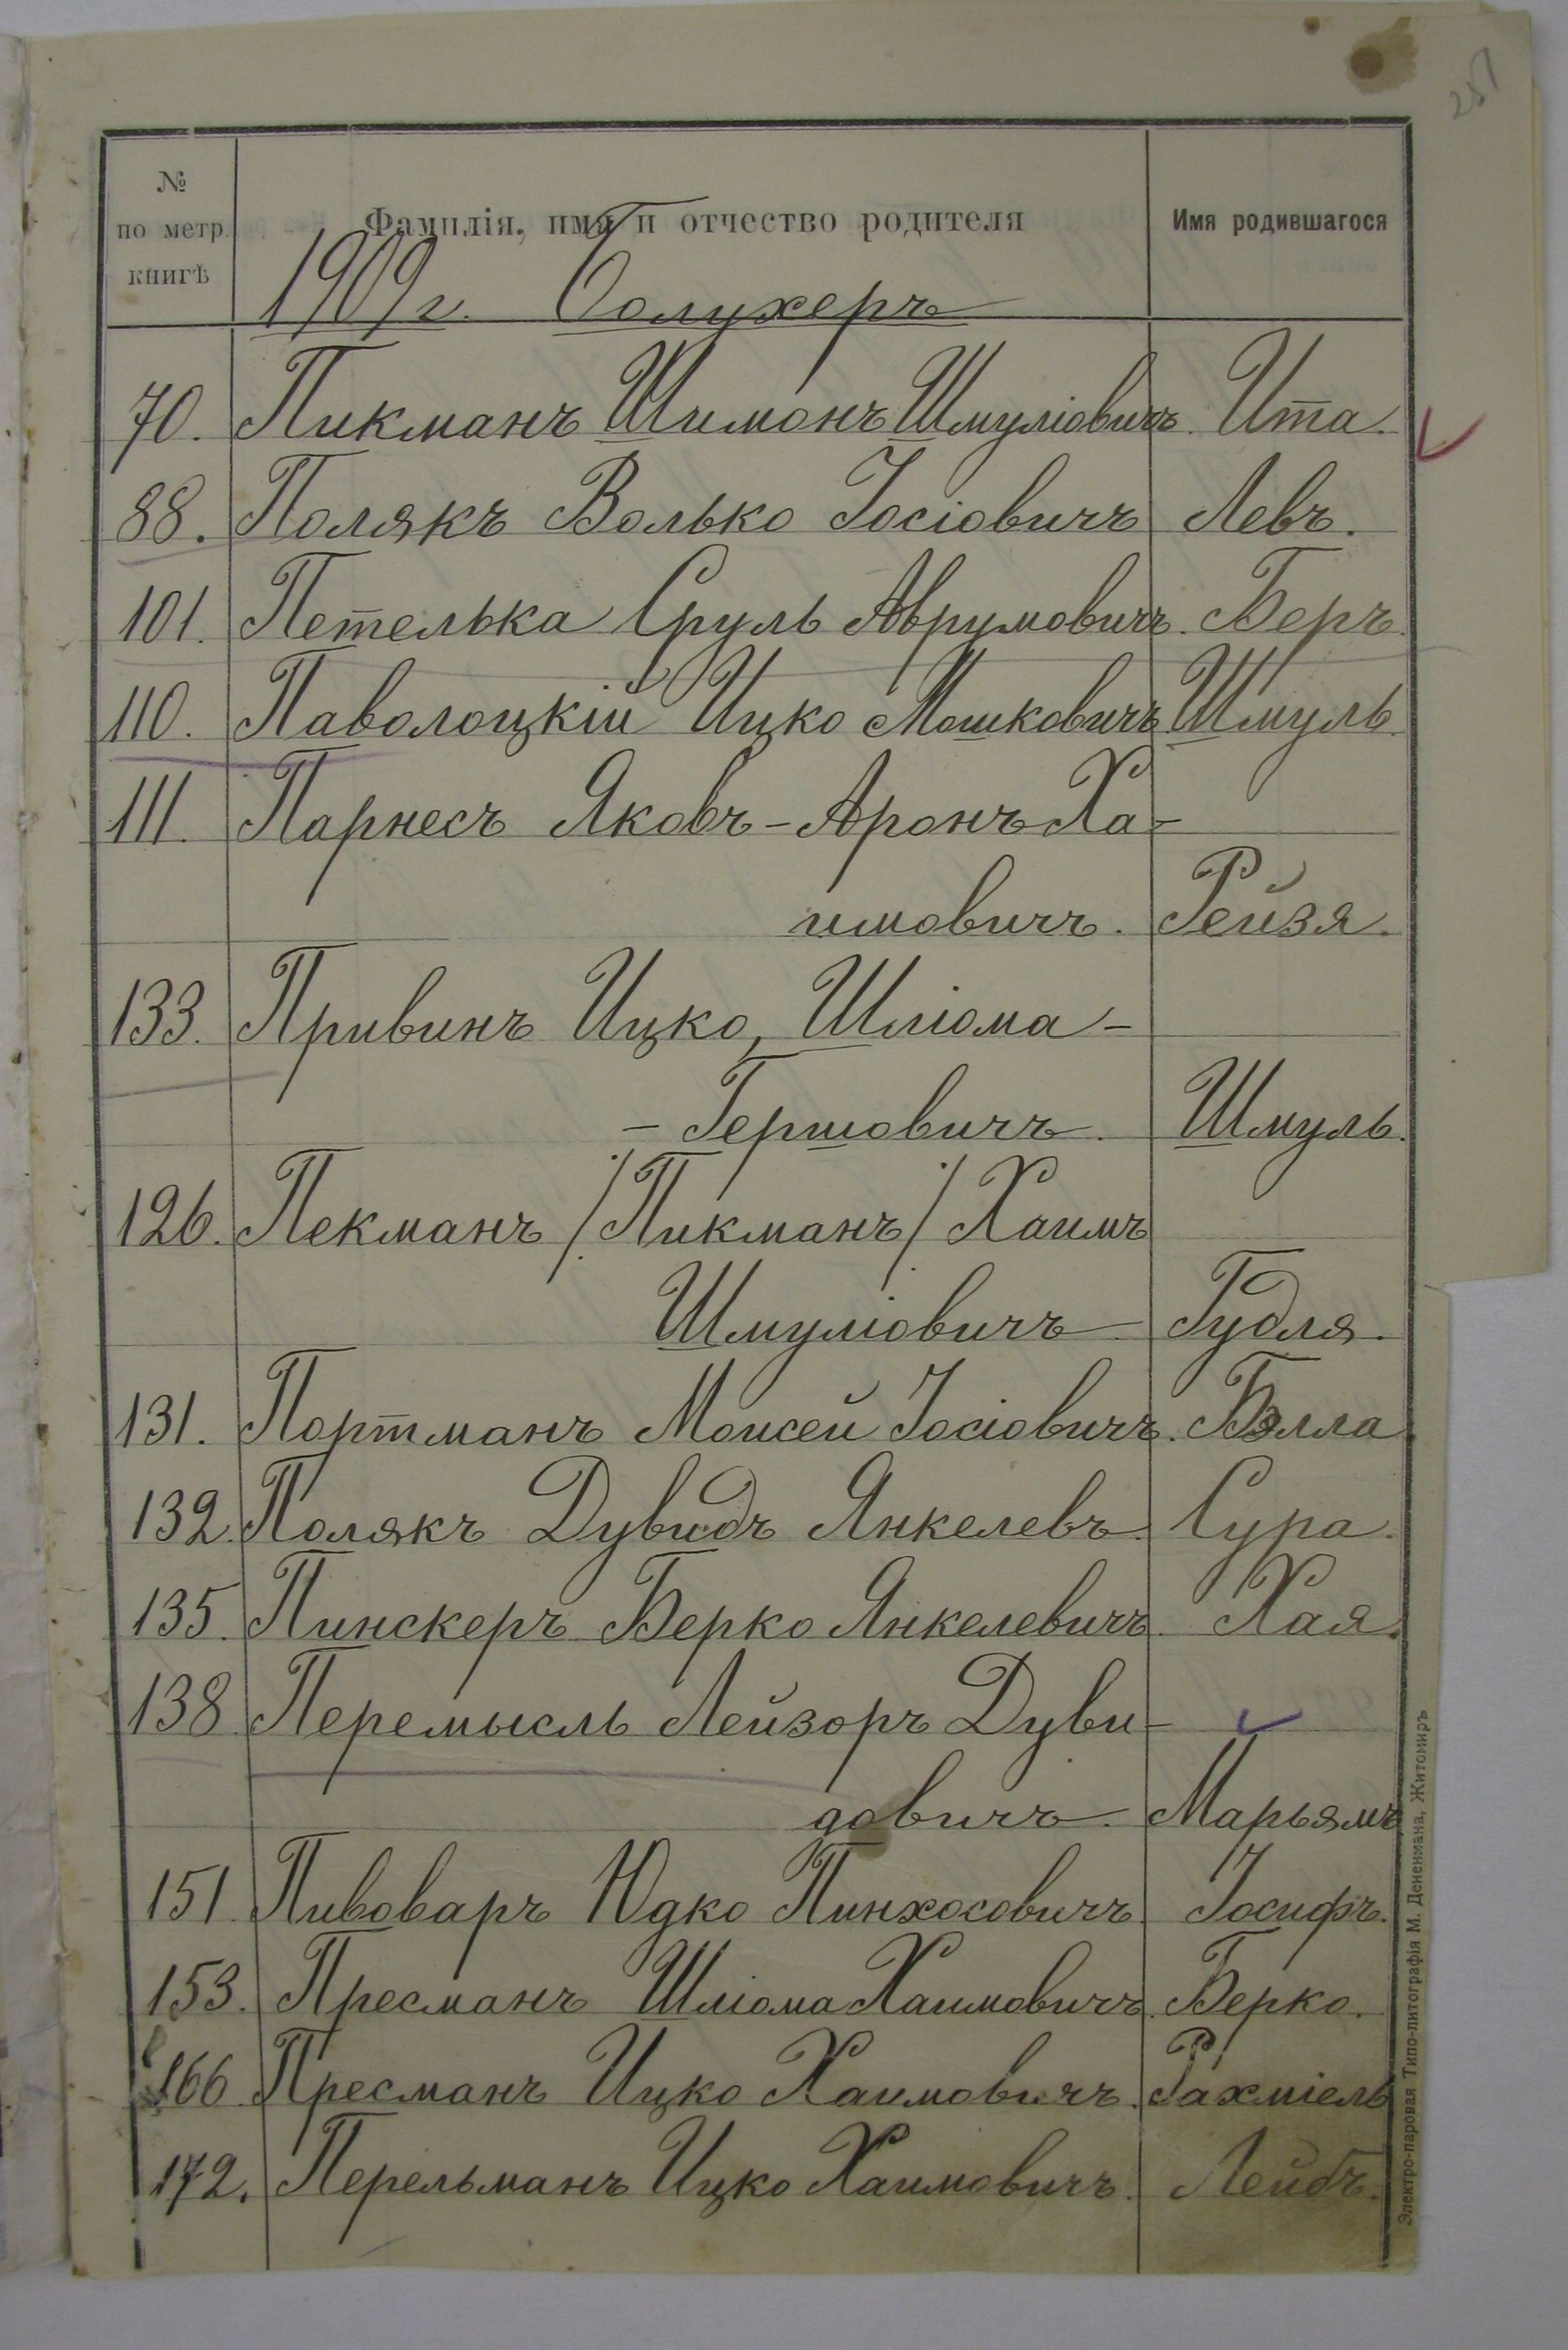 257
№ по метр. книгѣ Фамилія, имя и отчество родителя Имя родившагося
1909 г. Солухеръ
70. Пикманъ Шимонъ Шмуліовичъ. Ита.
88. Полякъ Волько Іосіовичъ Левъ.
101. Петелька Сруль Аврумовичъ. Беръ.
110. Паволоцкій Ицко Мошковичъ Шмуль.
111. Парнесъ Яковъ-Аронъ Ха-
имовичъ. Рейзя.
133. Привинъ Ицко, Шліома-
-Гершовичъ. Шмуль.
126. Пекманъ /Пикманъ/ Хаимъ
Шмуліовичъ Гудля.
131. Портманъ Моисей Іосіовичъ. Бэлла
132. Полякъ Дувидъ Янкелевъ. Сура.
135. Пинскеръ Берко Янкелевичъ. Хая.
138 Перемысль Лейзоръ Дуви-
довичъ. Марьямъ
151. Пивоваръ Юдко Пинхосовичъ. Іосифъ.
153. Пресманъ Шліома Хаимовичъ. Берко.
166 Пресманъ Ицко Хаимовичъ. Рахміель
172. Перельманъ Ицко Хаимовичъ. Лейбъ.
Электро-паровая Типо-литографія М. Дененмана, Житомиръ